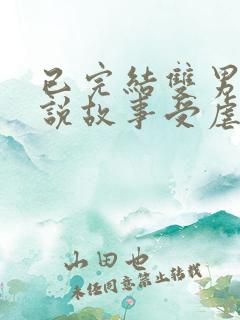 已完結雙男
說故事受虐
山田也
未经同意禁止转载